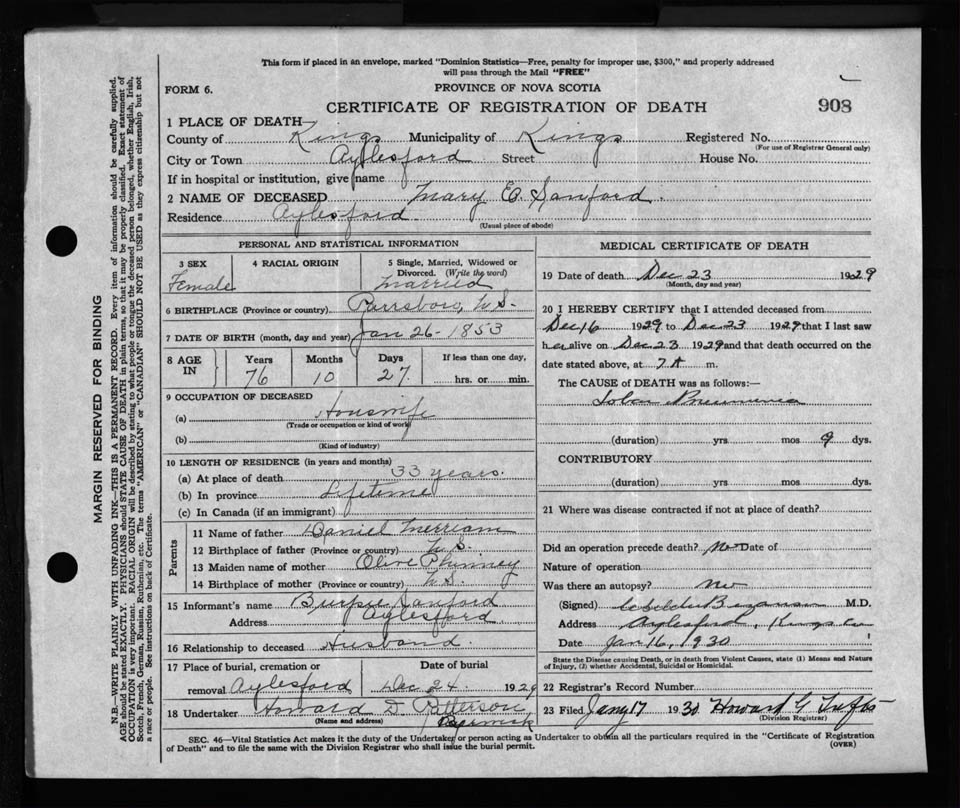 This form if placed in an envelope, marked "Dominion Statistics—Free, penalty for improper use, $300," and properly addressed
will pass through the Mail "FREE"
FORM 6.
PROVINCE OF NOVA SCOTIA
CERTIFICATE OF REGISTRATION OF DEATH
908
1 PLACE OF DEATH
County of Kings Municipality of Kings Registered No.
(For use of Registrar General only)
City or Town Aylesford Street House No.
If in hospital or institution, give name
2 NAME OF DECEASED Mary E. Sanford
Residence Aylesford
(Usual place of abode)
PERSONAL AND STATISTICAL INFORMATION
3 SEX 4 RACIAL ORIGIN 5 Single, Married, Widowed or
Divorced. (Write the word)
Female Married
6 BIRTHPLACE (Province or country) Parrsboro, N.S.
7 DATE OF BIRTH (month, day and year) Jan 26 - 1853
8 AGE IN Years Months Days If less than one day,
76 10 27 hrs. or min.
9 OCCUPATION OF DECEASED
(a) Housewife
(Trade or occupation or kind of work)
(b)
(Kind of industry)
10 LENGTH OF RESIDENCE (in years and months)
(a) At place of death 33 years.
(b) In province Lifetime
(c) In Canada (if an immigrant)
Parents
11 Name of father Daniel Merriam
12 Birthplace of father (Province or country) N.S.
13 Maiden name of mother Olive Phinney
14 Birthplace of mother (Province or country) N.S.
15 Informant's name Burpee Sanford
Address Aylesford
16 Relationship to deceased Husband
17 Place of burial, cremation or Date of burial
removal Aylesford Dec 24 1929
18 Undertaker Howard D Patterson
(Name and address) Berwick
MEDICAL CERTIFICATE OF DEATH
19 Date of death Dec 23 1929
(Month, day and year)
20 I HEREBY CERTIFY that I attended deceased from
Dec 16 1929 to Dec 23 1929 that I last saw
her alive on Dec 23 1929 and that death occurred on the
date stated above, at 7 A m.
The CAUSE OF DEATH was as follows:—
Lobar Pneumonia
(duration) yrs mos 9 dys.
CONTRIBUTORY
(duration) yrs mos dys.
21 Where was disease contracted if not at place of death?
Did an operation precede death? No Date of
Nature of operation
Was there an autopsy? No
(Signed) Bezanson M.D.
Address Aylesford, Kings Co
Date Jan 16, 1930
State the Disease causing Death, or in death from Violent Causes, state (1) Means and Nature
of Injury, (2) whether Accidental, Suicidal or Homicidal.
22 Registrar's Record Number
23 Filed Jany 17 1930 Howard G Tufts
(Division Registrar)
SEC. 46—Vital Statistics Act makes it the duty of the Undertaker or person acting as Undertaker to obtain all the particulars required in the "Certificate of Registration
of Death" and to file the same with the Division Registrar who shall issue the burial permit.
(OVER)
MARGIN RESERVED FOR BINDING
N.B.—WRITE PLAINLY WITH UNFADING INK—THIS IS A PERMANENT RECORD. Every item of information should be carefully supplied.
AGE should be stated EXACTLY. PHYSICIANS should STATE CAUSE OF DEATH in plain terms, so that it may be properly classified. Exact statement of
OCCUPATION is very important. RACIAL ORIGIN will be described by stating to what people or tongue the deceased person belonged, whether English, Irish,
Scotch, French, German, Russian, Ruthenian, etc. The terms "AMERICAN" or "CANADIAN" SHOULD NOT BE USED as they express citizenship but not
a race or people. See instructions on back of Certificate.